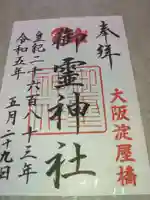 奉拝
大阪淀屋橋
御霊神社
皇紀二千六百八十三年
令和五年
五月二十九日